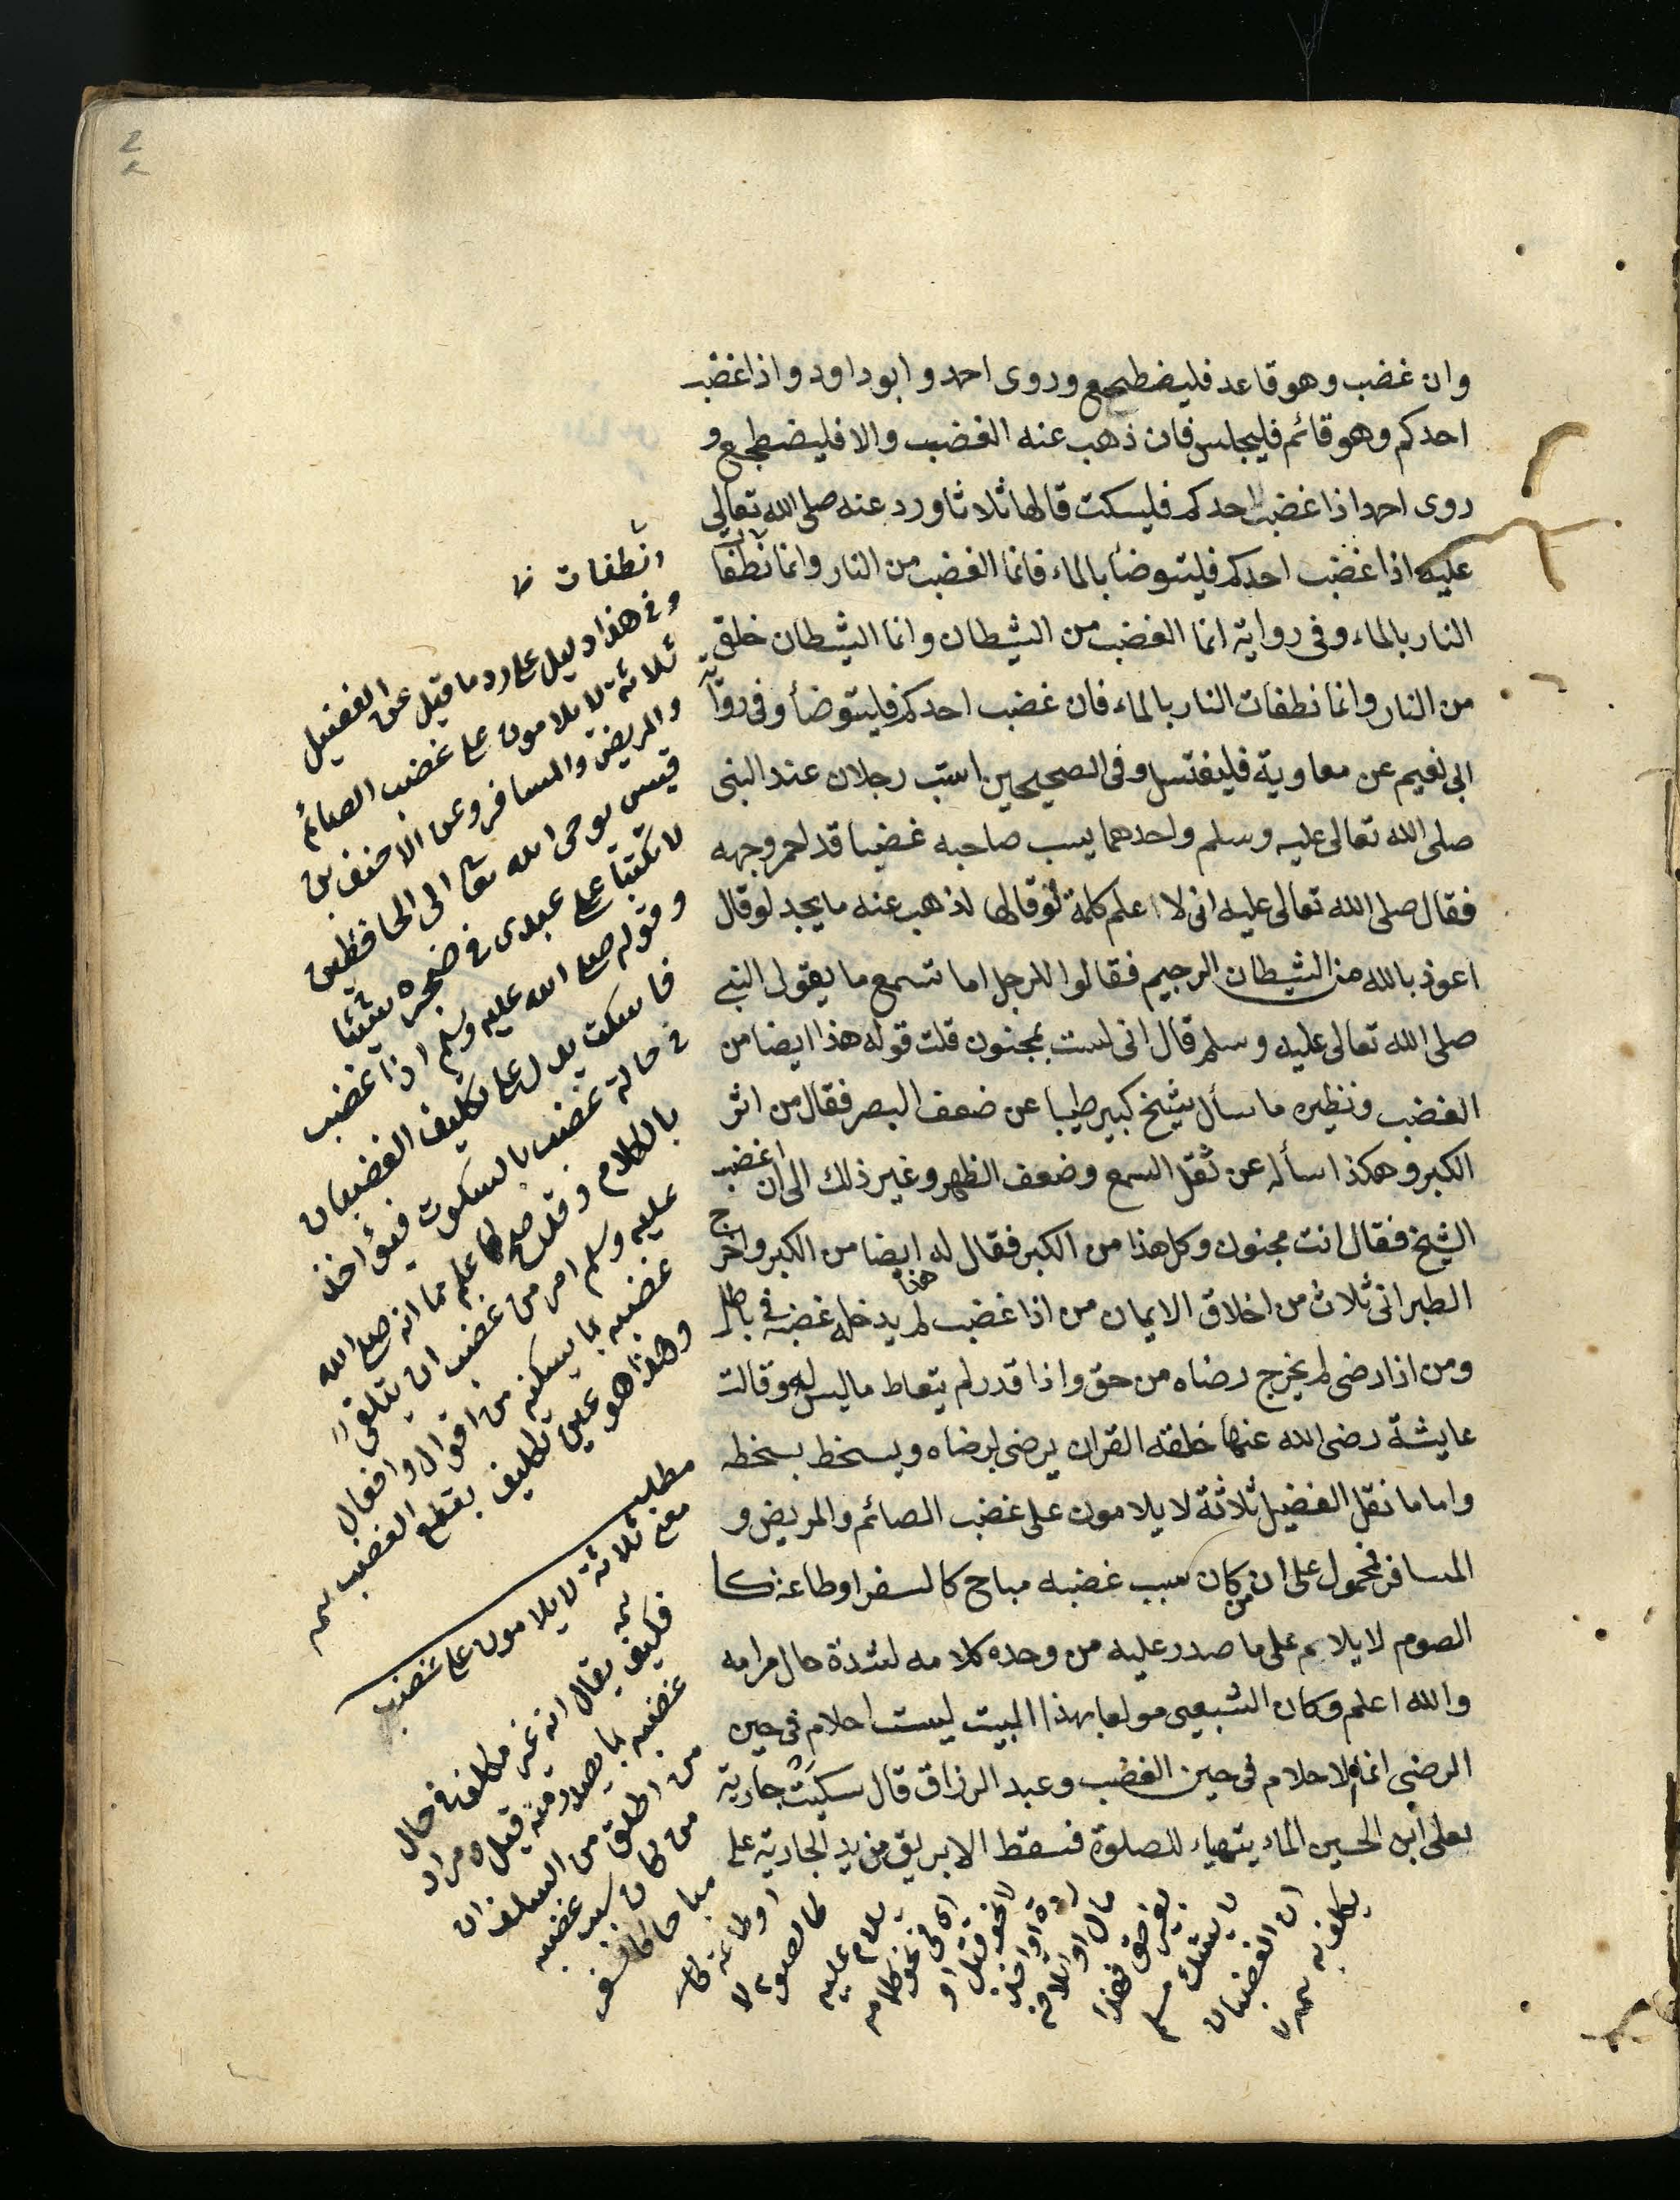 وان غضب وهو قاعد فليضطجع وروى احمد وابو داود واذا غضب
احدكم وهو قائم فليجلس فان ذهب عنه الغضب والا فليضطجع و
روى احمد اذا غضب احدكم فليسكت قالها ثلاثا ورد عنه صلى الله تعالى
عليه اذا غضب احدكم فليتوضأ بالماء فانما الغضب من النار وانما تطفأ
النار بالماء وفى رواية انما الغضب من الشيطان وانما الشيطان خلق
من النار وانما تطفأت النار بالماء فان غضب احدكم فليتوضأ وفى رواية
ابى نعيم عن معاوية فليغتسل وفى الصحيحين استب رجلان عند النبى
صلى الله تعالى عليه وسلم واحدهما يسب صاحبه غضبا قد احمر وجهه
فقال صلى الله تعالى عليه انى لا اعلم كلمة لو قالها لذهب عنه ما يجد لو قال
اعوذ بالله من الشيطان الرجيم فقالوا للرجل اما تسمع ما يقول النبى
صلى الله تعالى عليه وسلم قال انى لست بمجنون قلت قوله هذا ايضا من
الغضب ونظيره ما سأل شيخ كبير طبيبا عن ضعف البصر فقال من اثر
الكبر وهكذا سأله عن ثقل السمع وضعف الظهر وغير ذلك الى ان اغضب
الشيخ فقال انت مجنون وكل هذا من الكبر فقال له هذا ايضا من الكبر واخرج
الطبرانى ثلاث من اخلاق الايمان من اذا غضب لم يدخله غضبه فى باطل
ومن اذا رضى لم يخرج رضاه من حق واذا قدر لم يتعاط ما ليس له وقالت
عايشة رضى الله عنها خلقه القران يرضى لرضاه ويسخط بسخطه
واما ما نقل الفضيل ثلاثة لا يلامون على غضب الصائم والمريض و
المسافر فمحمول على ان من كان سبب غضبه مباح كالسفر او طاعة كا
الصوم لا يلام على ما صدر عليه من وحده كلامه لشدة حال مرامه
والله اعلم وكان الشعبى مولعا بهذا البيت ليست احلام فى حين
الرضى انما الاحلام فى حين الغضب وعبد الرزاق قال سكبت جارية
لعلى ابن الحسين الماء يتهياء للصلوة فسقط الابريق من يد الجارية على
انطفات ظ
وفى هذا دليل على رد ما قيل عن الفضيل
ثلاثة لا يلامون على غضب الصائم
والمريض والمسافر وعن الاحنف بن
قيس يوحى الله تعا الى الحافظين
لا تكتبا على عبدى فى ضجره شيئا
وقوله صلى الله عليه وسلم اذا غضب
فاسكت يدل على تكليف الغضبان
فى حالة غضبه بالسكوت فيؤاخذ
بالكلام وقد صح
عليه وسلم امر من غضب ان يتلقى
غضبه بما يسكنه من اقوال وافعال
وهذا هو عين تكليف بقطع الغضب سمه
مطلب
معنى ثلاثة لا يلامون على غضب
سمه
فكيف يقال انه غير مكلف فى حال
غضبه بما يصدر منه قيل ومراد
من اطلق من السلف ان
من كان سبب غضبه
مباحا كالسفر
او طاعة كا
كالصوم لا
يلام عليه
اى فى نحو كلامه
لا نحو قتل او
ردة او اخذ
مال او اتلافه
بغير حق فهذا
لا يشك مسلم
ان الغضبان
يكلف به سمه
2